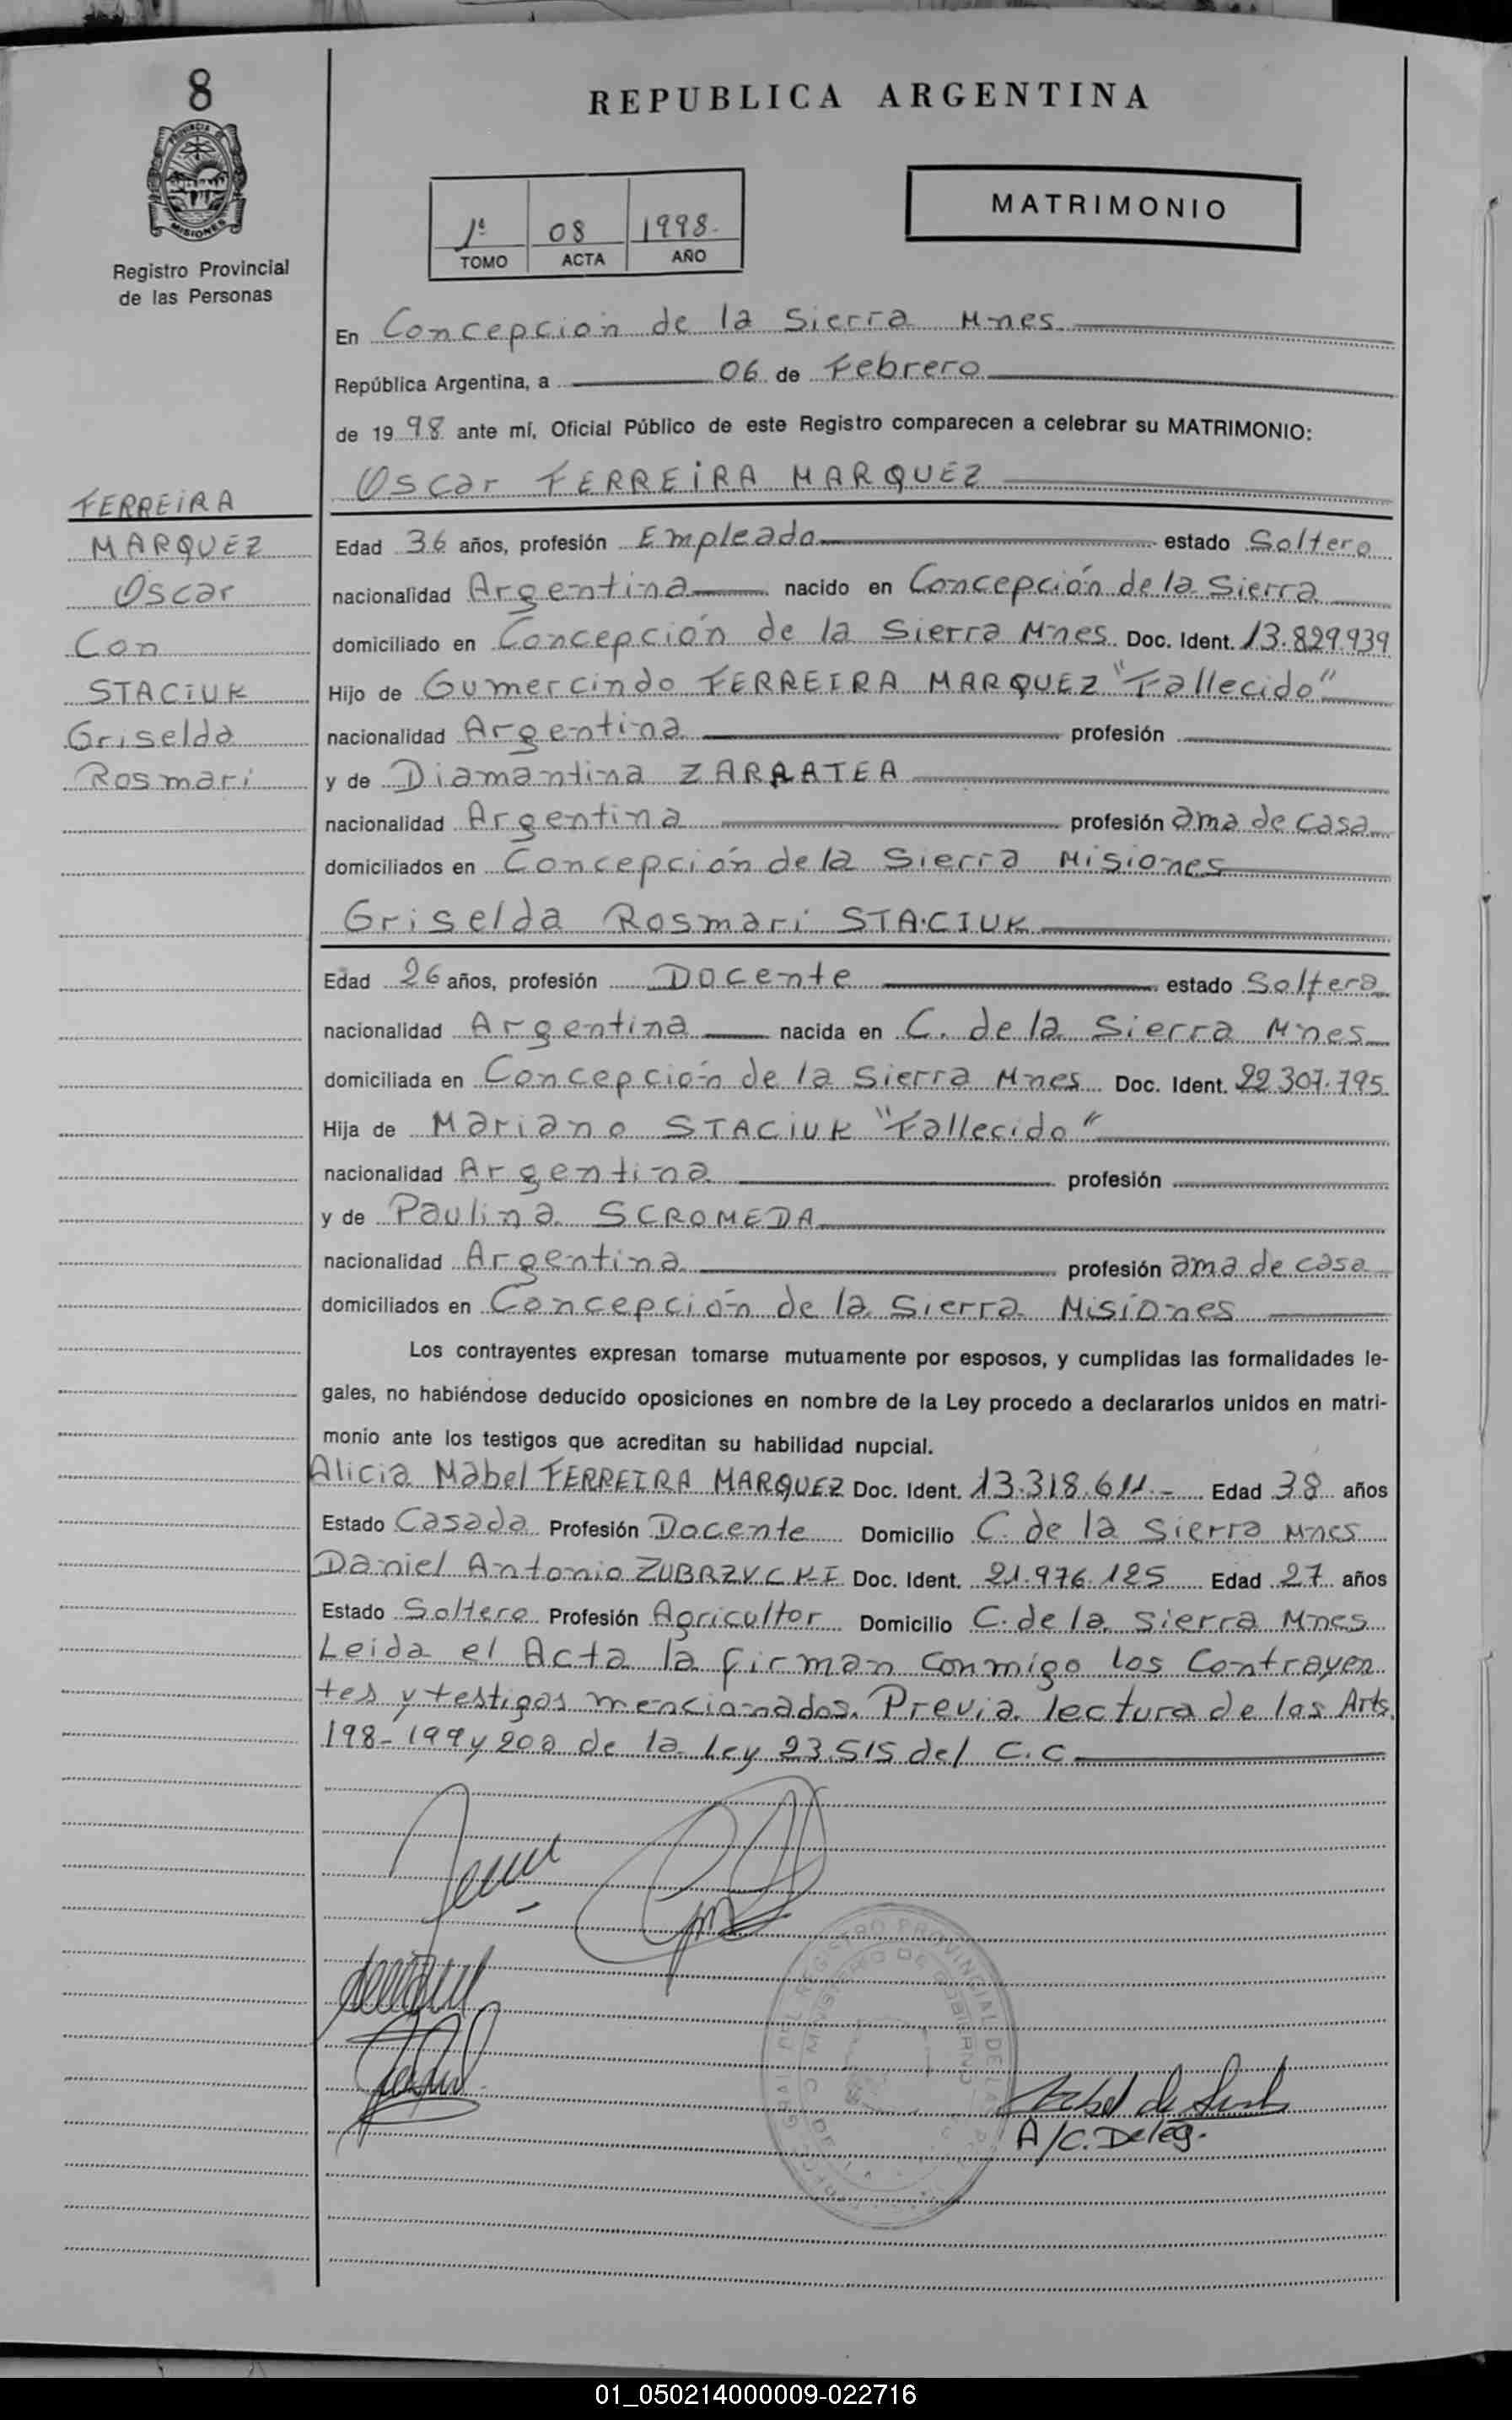 8
PROVINCIA DE
MISIONES
Registro Provincial
de las Personas
REPUBLICA ARGENTINA
1ª 08 1998.
TOMO ACTA AÑO
MATRIMONIO
En Concepción de la Sierra Mnes.
República Argentina, a 06 de Febrero
de 19 98 ante mí, Oficial Público de este Registro comparecen a celebrar su MATRIMONIO:
Oscar FERREIRA MARQUEZ
FERREIRA
MARQUEZ
Oscar
Con
STACIUK
Griselda
Rosmari
Edad 36 años, profesión Empleado estado Soltero
nacionalidad Argentina nacido en Concepción de la Sierra
domiciliado en Concepción de la Sierra Mnes. Doc. Ident. 13.829.939
Hijo de Gumercindo FERREIRA MARQUEZ "Fallecido"
nacionalidad Argentina profesión
y de Diamantina ZARRATEA
nacionalidad Argentina profesión ama de casa
domiciliados en Concepción de la Sierra Misiones
Griselda Rosmari STACIUK
Edad 26 años, profesión Docente estado Soltera
nacionalidad Argentina nacida en C. de la Sierra Mnes
domiciliada en Concepción de la Sierra Mnes Doc. Ident. 22.307.795
Hija de Mariano STACIUK "Fallecido"
nacionalidad Argentina profesión
y de Paulina SCROMEDA
nacionalidad Argentina profesión ama de casa
domiciliados en Concepción de la Sierra Misiones
Los contrayentes expresan tomarse mutuamente por esposos, y cumplidas las formalidades le-
gales, no habiéndose deducido oposiciones en nombre de la Ley procedo a declararlos unidos en matri-
monio ante los testigos que acreditan su habilidad nupcial.
Alicia Mabel FERREIRA MARQUEZ Doc. Ident. 13.318.611.- Edad 38 años
Estado Casada Profesión Docente Domicilio C. de la Sierra Mnes
Daniel Antonio ZUBRZYCKI Doc. Ident. 21.976.125 Edad 27 años
Estado Soltero Profesión Agricultor Domicilio C. de la Sierra Mnes
Leida el Acta la firman conmigo los Contrayen
tes y testigos mencionados. Previa lectura de los Arts.
198-199 y 200 de la Ley 23.515 del C.C
REGISTRO PROVINCIAL DE LAS
MINISTERIO DE GOBIERNO
A/C. Deleg.
01_050214000009-022716